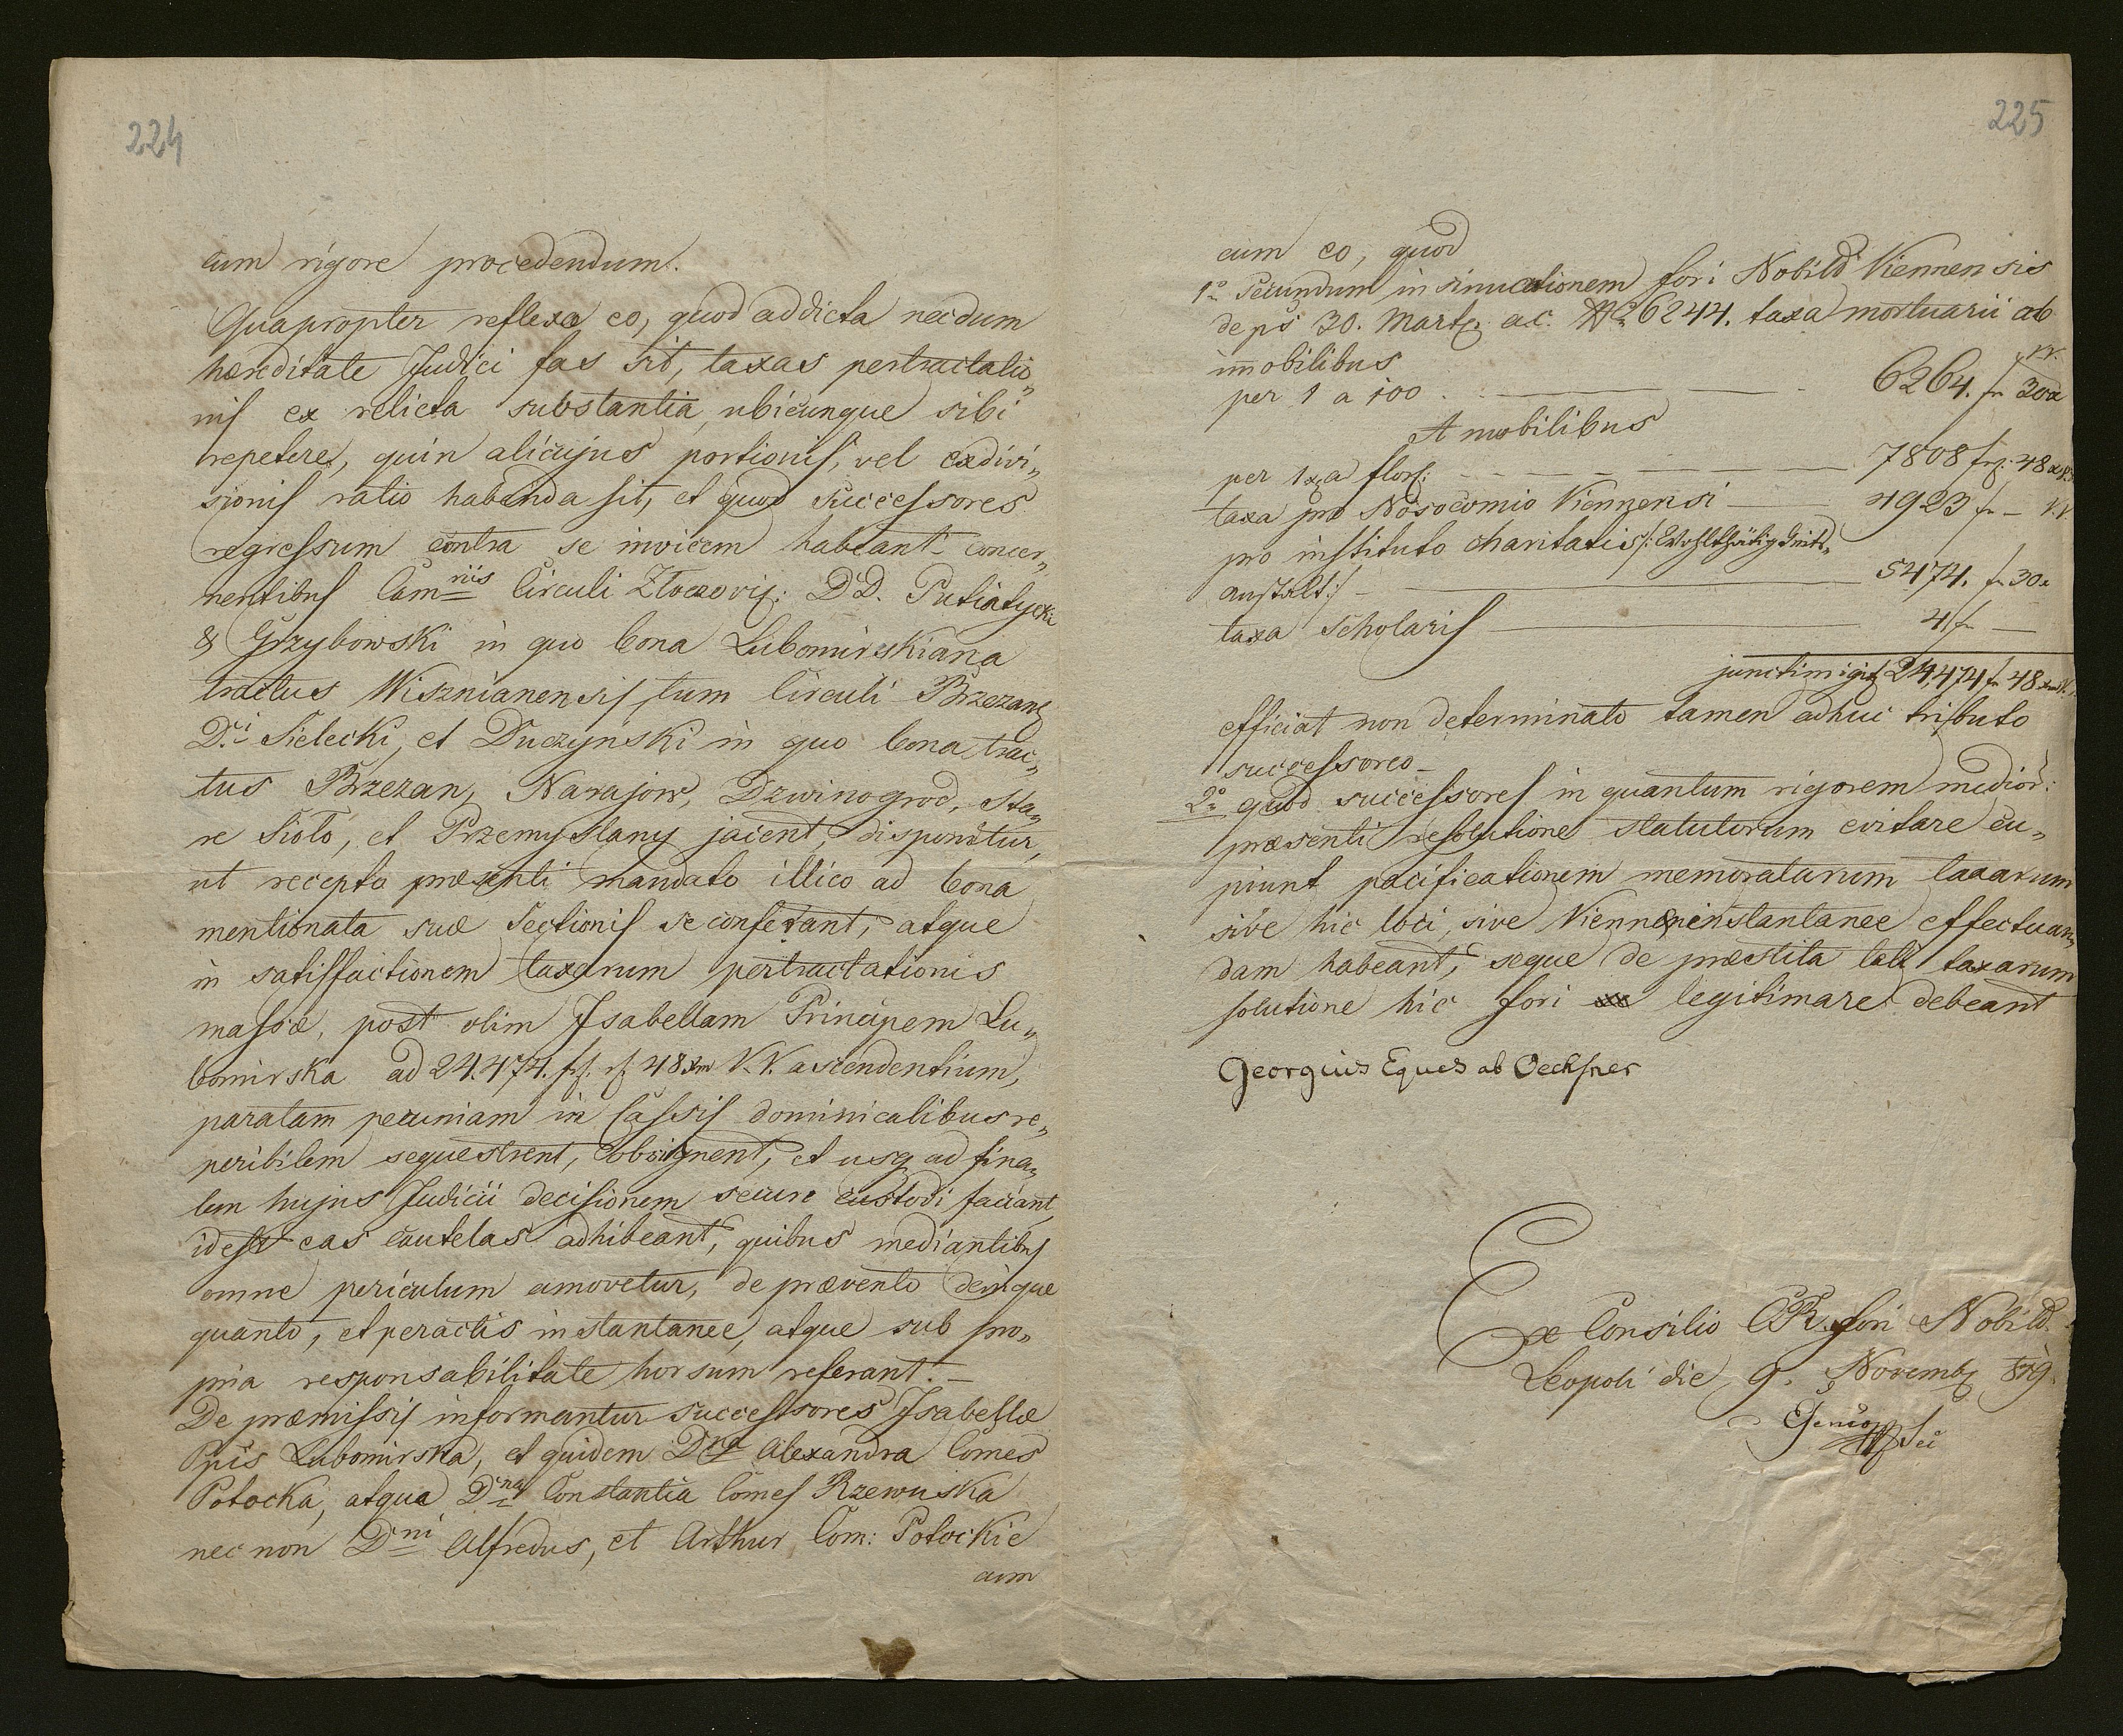 224
cum rigore procedendum.
Quapropter reflexo eo, quod addicta necdum
hæreditate Judici fas sit, taxas pertractatio„
nis ex relicta substantia, ubicunque sibi
repetere, quin alicujus portionis, vel exdivi„
sionis ratio habenda sit, et quod successores
regressum contra se invicem habeant concer„
nentibus Camriis Circuli Złoczov: DD. Putiatycki
& Grzybowski in quo bona Lubomirskiana
tractus Wisznianensis tum Circuli Brzezan
D.i Sielecki, et Duczynski in quo bona trac„
tus Brzezan, Narajow, Dzwinogrod, Sta„
re Sioło, et Przemyslany jacent, disponitur,
ut recepto præsenti mandato illico ad bona
mentionata suæ Sectionis se conferant, atque
in satisfactionem taxarum pertractationis
massæ, post olim Isabellam Principem Lu„
bomirska ad 24.474. fl. r. 48 xr V.V. ascendentium,
paratam pecuniam in Cassis dominicalibus re„
peribilem sequestrent, obsignent, et usq ad fina„
lem hujus Judicii decisionem secure custodi faciant,
idest eas cautelas adhibeant, quibus mediantibus
omne periculum amovetur, de prævento denique
quanto, et peractis instantanee, atque sub pro„
pria responsabilitate horsum referant.–
De præmissis informantur successores Isabellæ
Ppis Lubomirska, et quidem Dna Alexandra Comes
Potocka, atque Dna Constantia Comes Rzewuska
nec non Dni Alfredus, et Arthur Com: Potockie
cum
225
cum eo, quod
1o Secundum insinuationem fori Nobild Viennensis
de ps 30. Marty a.c. No 26244. taxa mortuarii ab
immobilibus V.V.
per 1 a 100 . — 6264. fr 30x
A mobilibus
per 1 x a flor: — 7808 fr: 48 x
taxa pro Nosocomio Viennensi — 4923 fr – V.V.
pro instituto charitatis /: Wohlthätigkeits„
anstalt :/ — 5474. fr 30x
taxa Scholaris — 4 fr —
junctim igit 24,474 fr 48
efficiat non determinato tamen adhuc tributo
successoreo–
2o quod successores in quantum rigorem medior:
præsenti resolutione statutorum evitare cu„
piunt pacificationem memoratarum taxarum
sive hic loci, sive Viennæ instantanee effectuan„
dam habeant, seque de præstita tali taxarum
solutione hic fori legitimare debeant
Georgius Eques ab Oechsner
Ex Consilio CR. fori Nobild.
Leopoli die 9. Novemb 819.